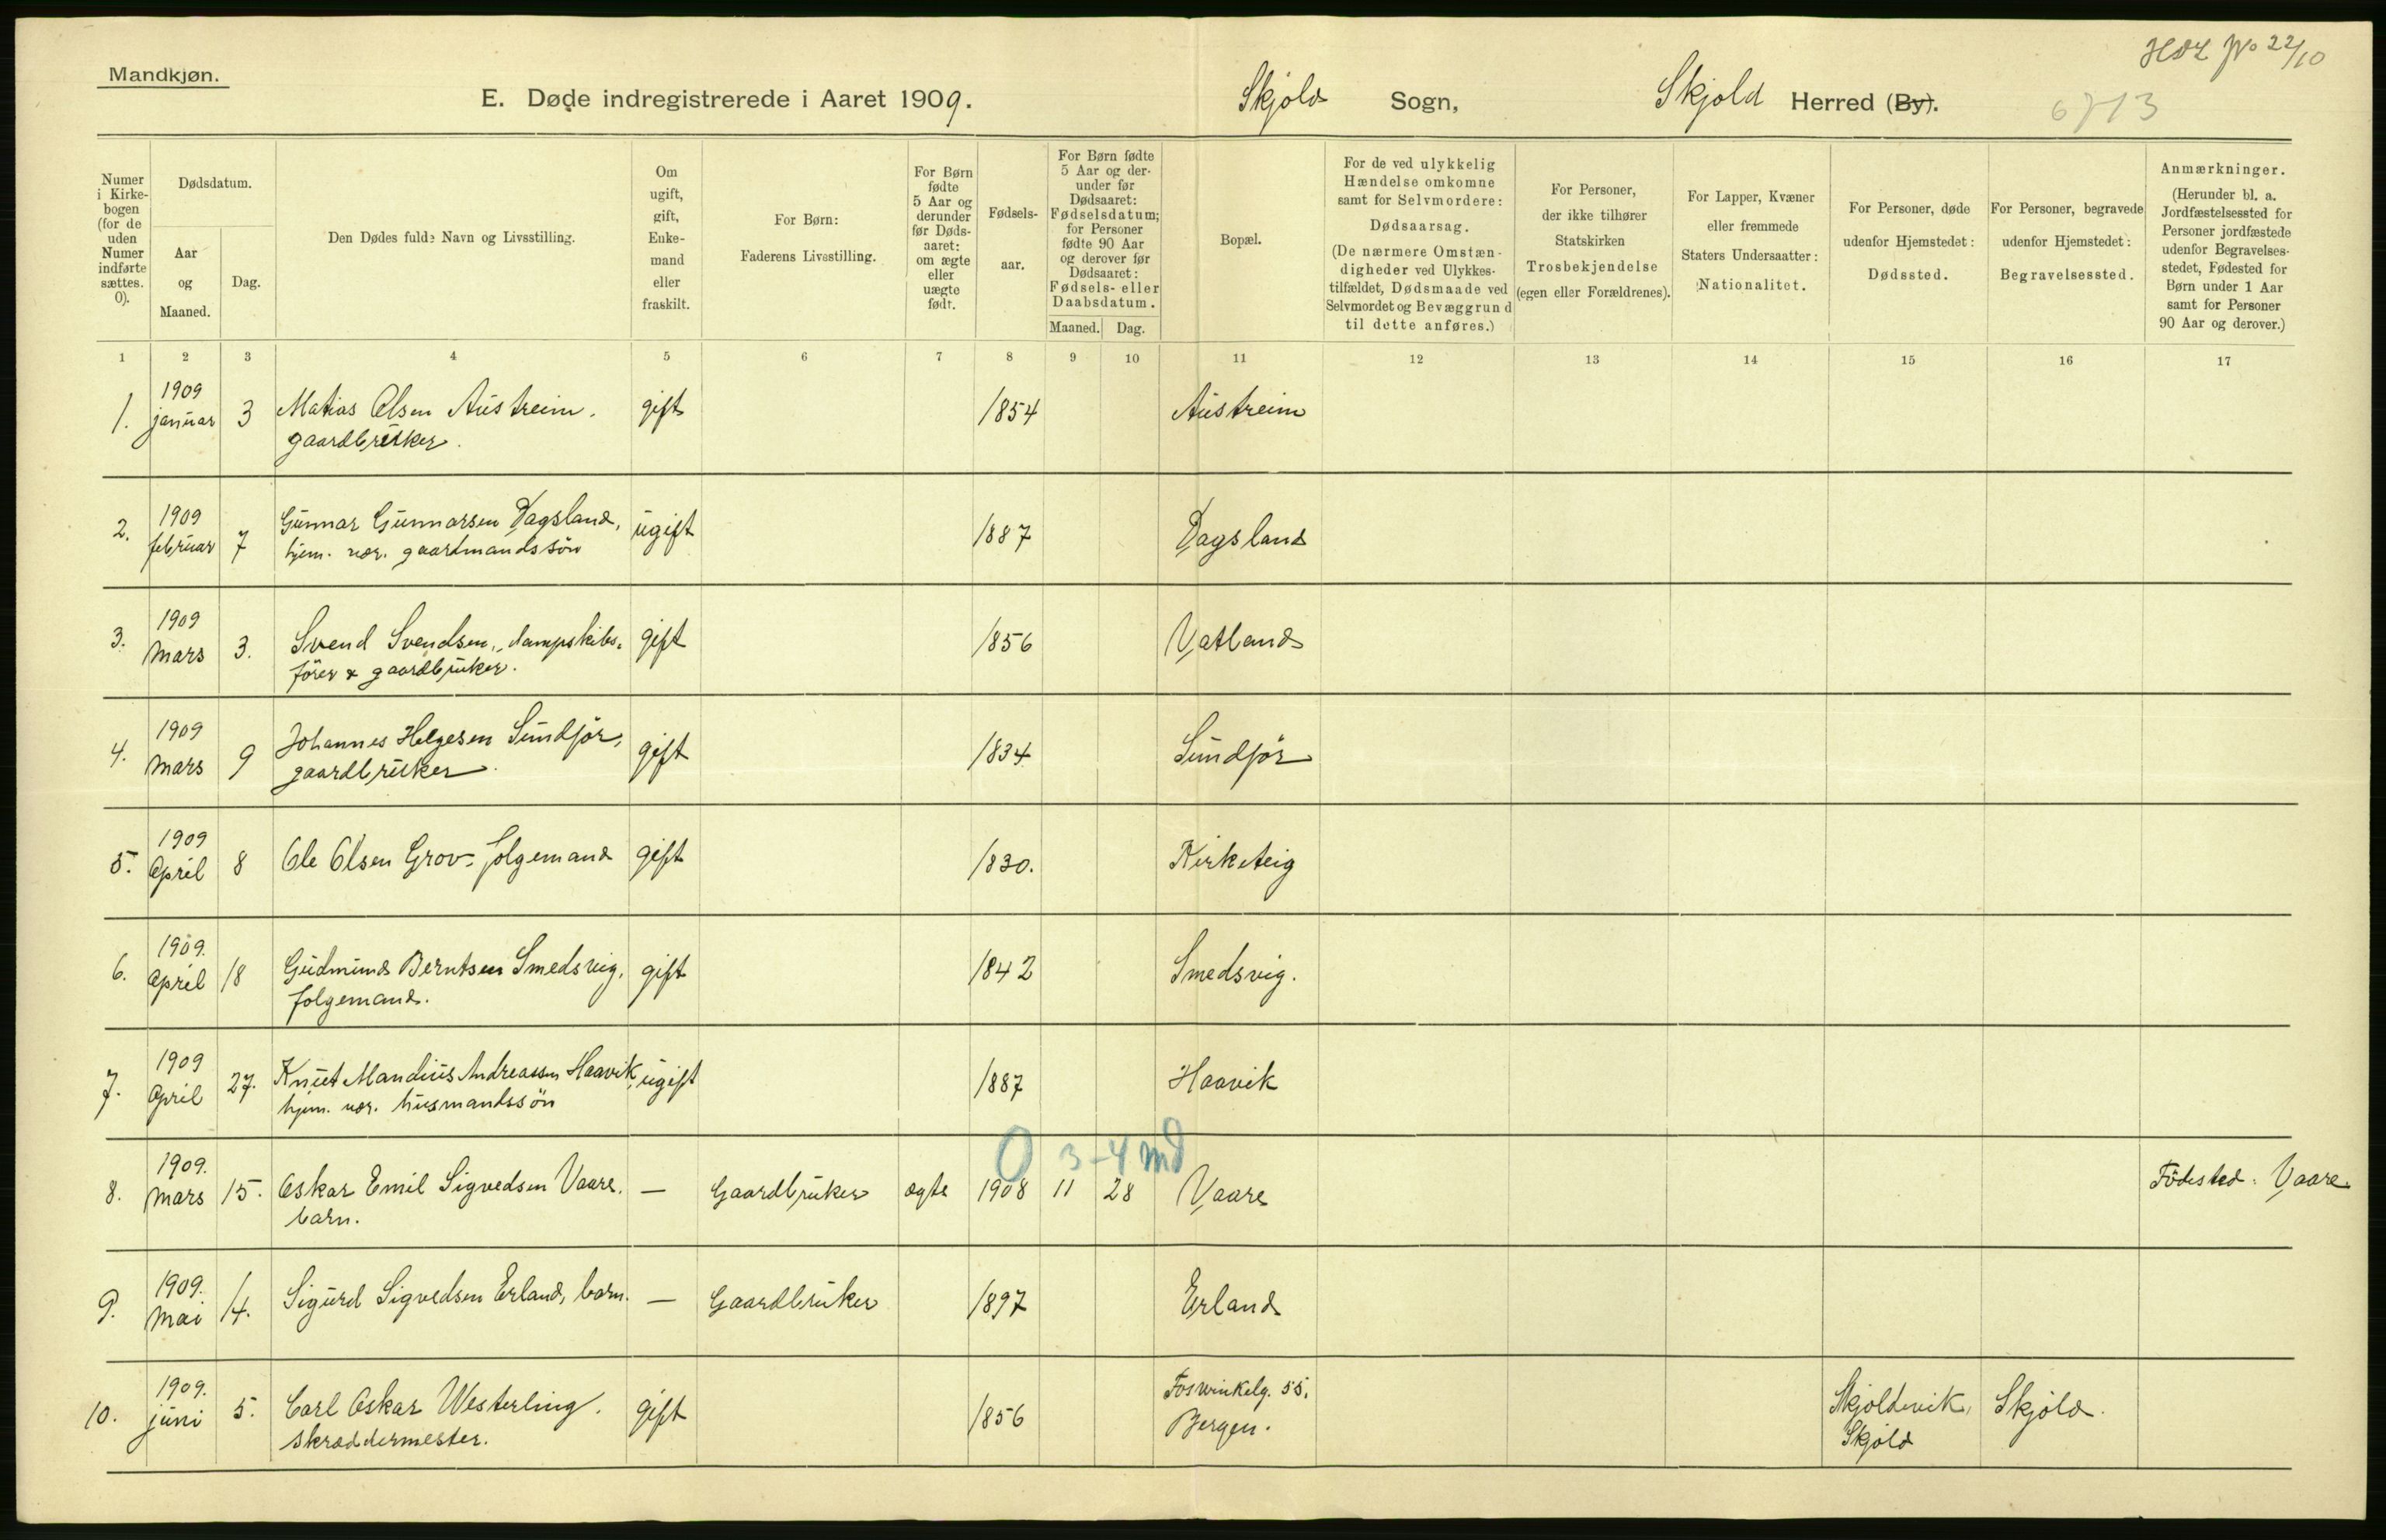 Mandkjøn.
E. Døde indregistrerede i Aaret 1909.
Skjold Sogn,
Skjold Herred (By).
No 22/10
Numer i Kirke-bogen (for de uden Numer indførte sættes. 0).
Dødsdatum.
Aar og Maaned.
Dag.
Den Dødes fulde Navn og Livsstilling.
Om ugift, gift, Enke-mand eller fraskilt.
For Børn: Faderens Livsstilling.
For Børn fødte 5 Aar og derunder før Døds-aaret: om ægte eller uægte født.
Fødsels-aar.
For Børn fødte 5 Aar og der-under før Dødsaaret: Fødselsdatum; for Personer fødte 90 Aar og derover før Dødsaaret: Fødsels- eller Daabsdatum.
Maaned. Dag.
Bopæl.
For de ved ulykkelig Hændelse omkomne samt for Selvmordere: Dødsaarsag. (De nærmere Omstæn-digheder ved Ulykkes-tilfældet, Dødsmaade ved Selvmordet og Bevæggrund til dette anføres.)
For Personer, der ikke tilhører Statskirken Trosbekjendelse (egen eller Forældrenes).
For Lapper, Kvæner eller fremmede Staters Undersaatter: Nationalitet.
For Personer, døde udenfor Hjemstedet: Dødssted.
For Personer, begravede udenfor Hjemstedet: Begravelsessted.
Anmærkninger. (Herunder bl. a. Jordfæstelsessted for Personer jordfæstede udenfor Begravelses-stedet, Fødested for Børn under 1 Aar samt for Personer 90 Aar og derover.)
1 2 3 4 5 6 7 8 9 10 11 12 13 14 15 16 17
1. 1909 januar 3 Matias Olsen Austreim. gift 1854 Austreim
gaardbruker.
2. 1909 februar 7 Gunnar Gunnarsen Dagsland, ugift 1887 Dagsland
hjem. vær. gaardmandssön
3. 1909 Mars 3. Svend Svendsen, dampskibs- gift 1856 Vatland
förer & gaardbruker.
4. 1909 Mars 9 Johannes Helgesen Sundför, gift 1834 Sundför
gaardbruker.
5. 1909 April 8 Ole Olsen Grov, folgemand gift 1830. Kirketeig
6. 1909. April 18 Gudmund Berntsen Smedsvig, gift 1842 Smedsvig.
folgemand.
7. 1909 April 27. Knut Mandius Andreassen Haavik, ugift 1887 Haavik
hjem. vær. husmandssön
0 3-4 md
8. 1909. Mars 15. Oskar Emil Sigvedsen Vaare. — Gaardbruker ægte 1908 11 28 Vaare Födested: Vaare
barn.
9. 1909. Mai 14. Sigurd Sigvedsen Erland, barn. — Gaardbruker 1897 Erland
10. 1909. juni 5. Carl Oskar Westerling. gift 1856 Foswinkelg. 55. Bergen. Skjoldevik, Skjold Skjold.
skræddermester.